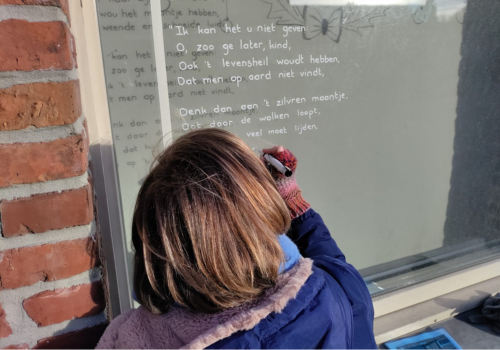 wou het maantje hebben,
"Ik kan het u niet geven
O, zoo ge later, kind,
Ook 't levensheil woudt hebben,
Dat men op aard niet vindt,
Denk dan aan 't zilvren maantje,
Dat door de wolken loopt,
veel moet lijden.